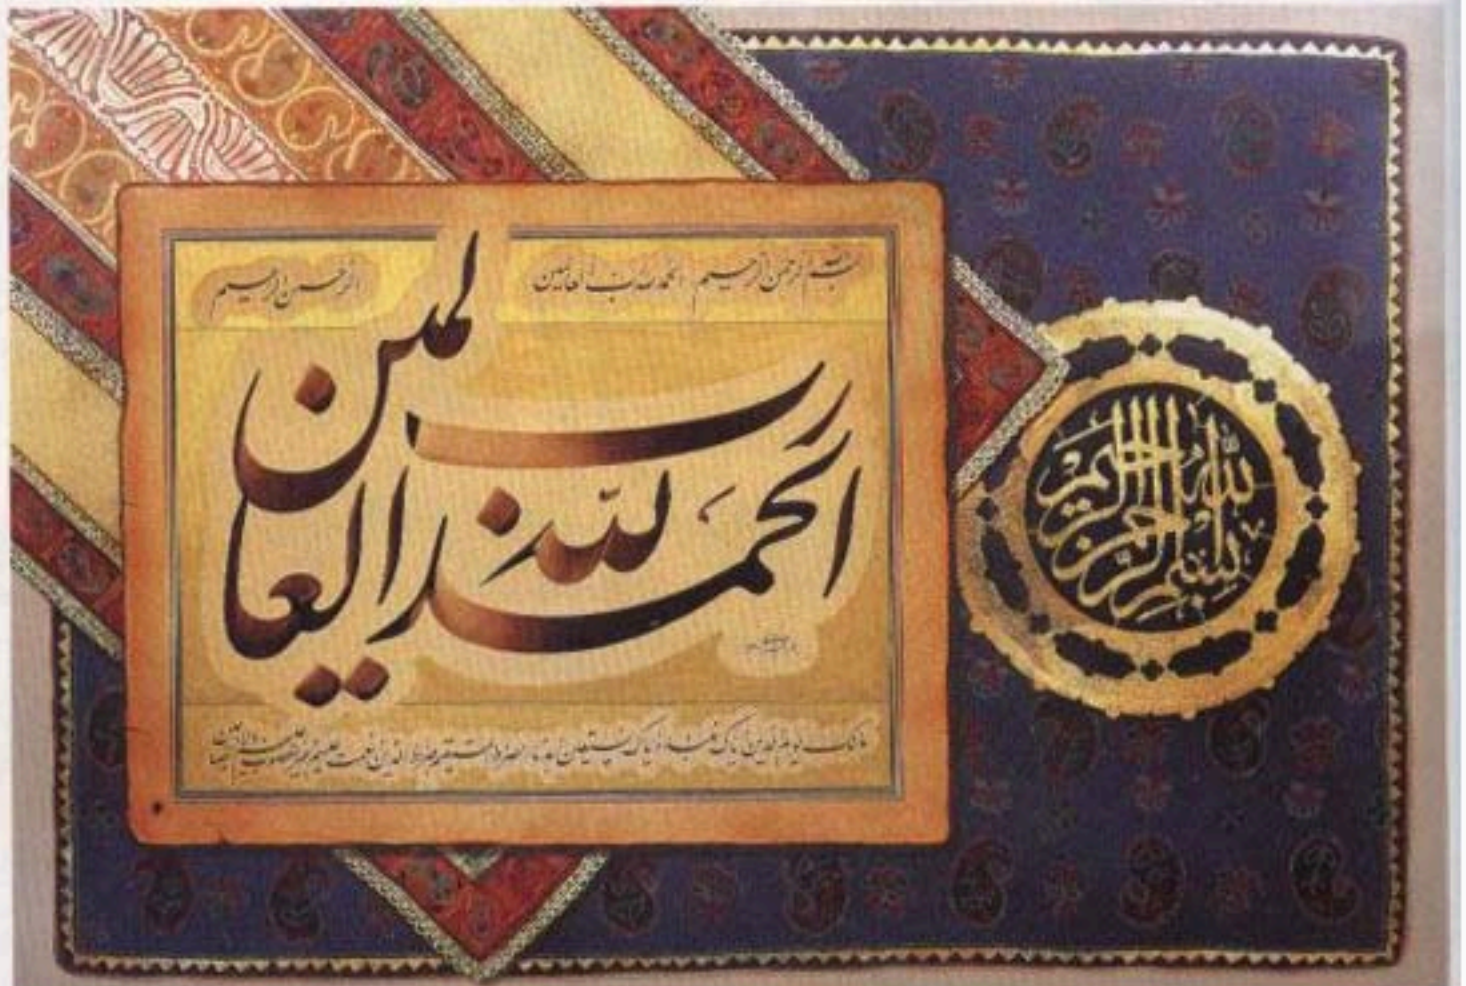 بسم الله الرحمن الرحیم الحمد لله رب العالمین الرحمن الرحیم
الحمد لله رب العالمین
مالک یوم الدین ایاک نعبد و ایاک نستعین اهدنا الصراط المستقیم صراط الذین انعمت علیهم غیر المغضوب علیهم ولا الضالین
بسم الله الرحمن الرحیم